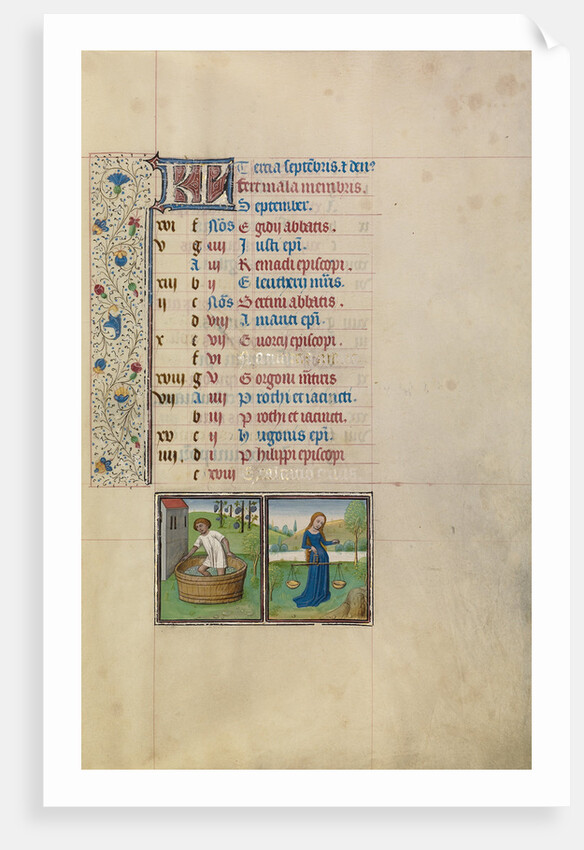 KL Tercia septēbris. et den⁹
fert mala membris.
September.
xvi f Noēs Egidij abbatis.
v g iiij Iusti epī.
A iij Remacli episcopi.
xiij b ij Eleutherij m̄ris.
ij c Noēs Bertini abbatis.
d viij Amanti epī.
x e vij Euorcij episcopi.
f vi
xviij g v Gorgonij m̄tiris
vij A iiij Prothi et iacincti.
b iij Prothi et iacincti.
xv c ij Hugonis epī.
iiij. d Philippi episcopi
e xviij Exaltatio crucis